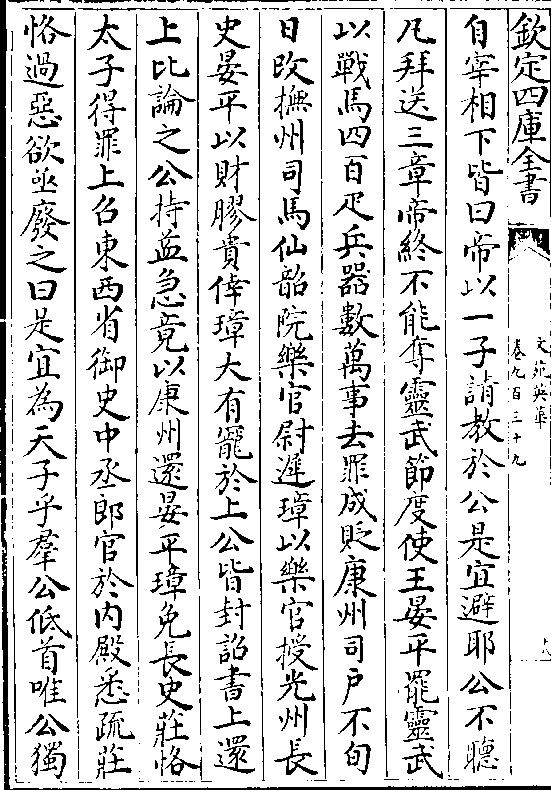 欽定四庫全書
文苑英華
卷九百三十九
自宰相下皆曰帝以一子請教於公是宜避耶公不聽
凡拜送三章帝終不能奪靈武節度使王晏平罷靈武
以戰馬四百疋兵器數萬事去罪成貶康州司戶不旬
日改撫州司馬仙韶院樂官尉遲璋以樂官授光州長
史晏平以財膠貴倖璋大有寵於上公皆封詔書上還
上比論之公持益急竟以康州還晏平璋免長史莊恪
太子得罪上召東西省御史中丞郎官於内殿悉疏莊
恪過惡欲亟廢之曰是宜為天子乎羣公低首唯公獨